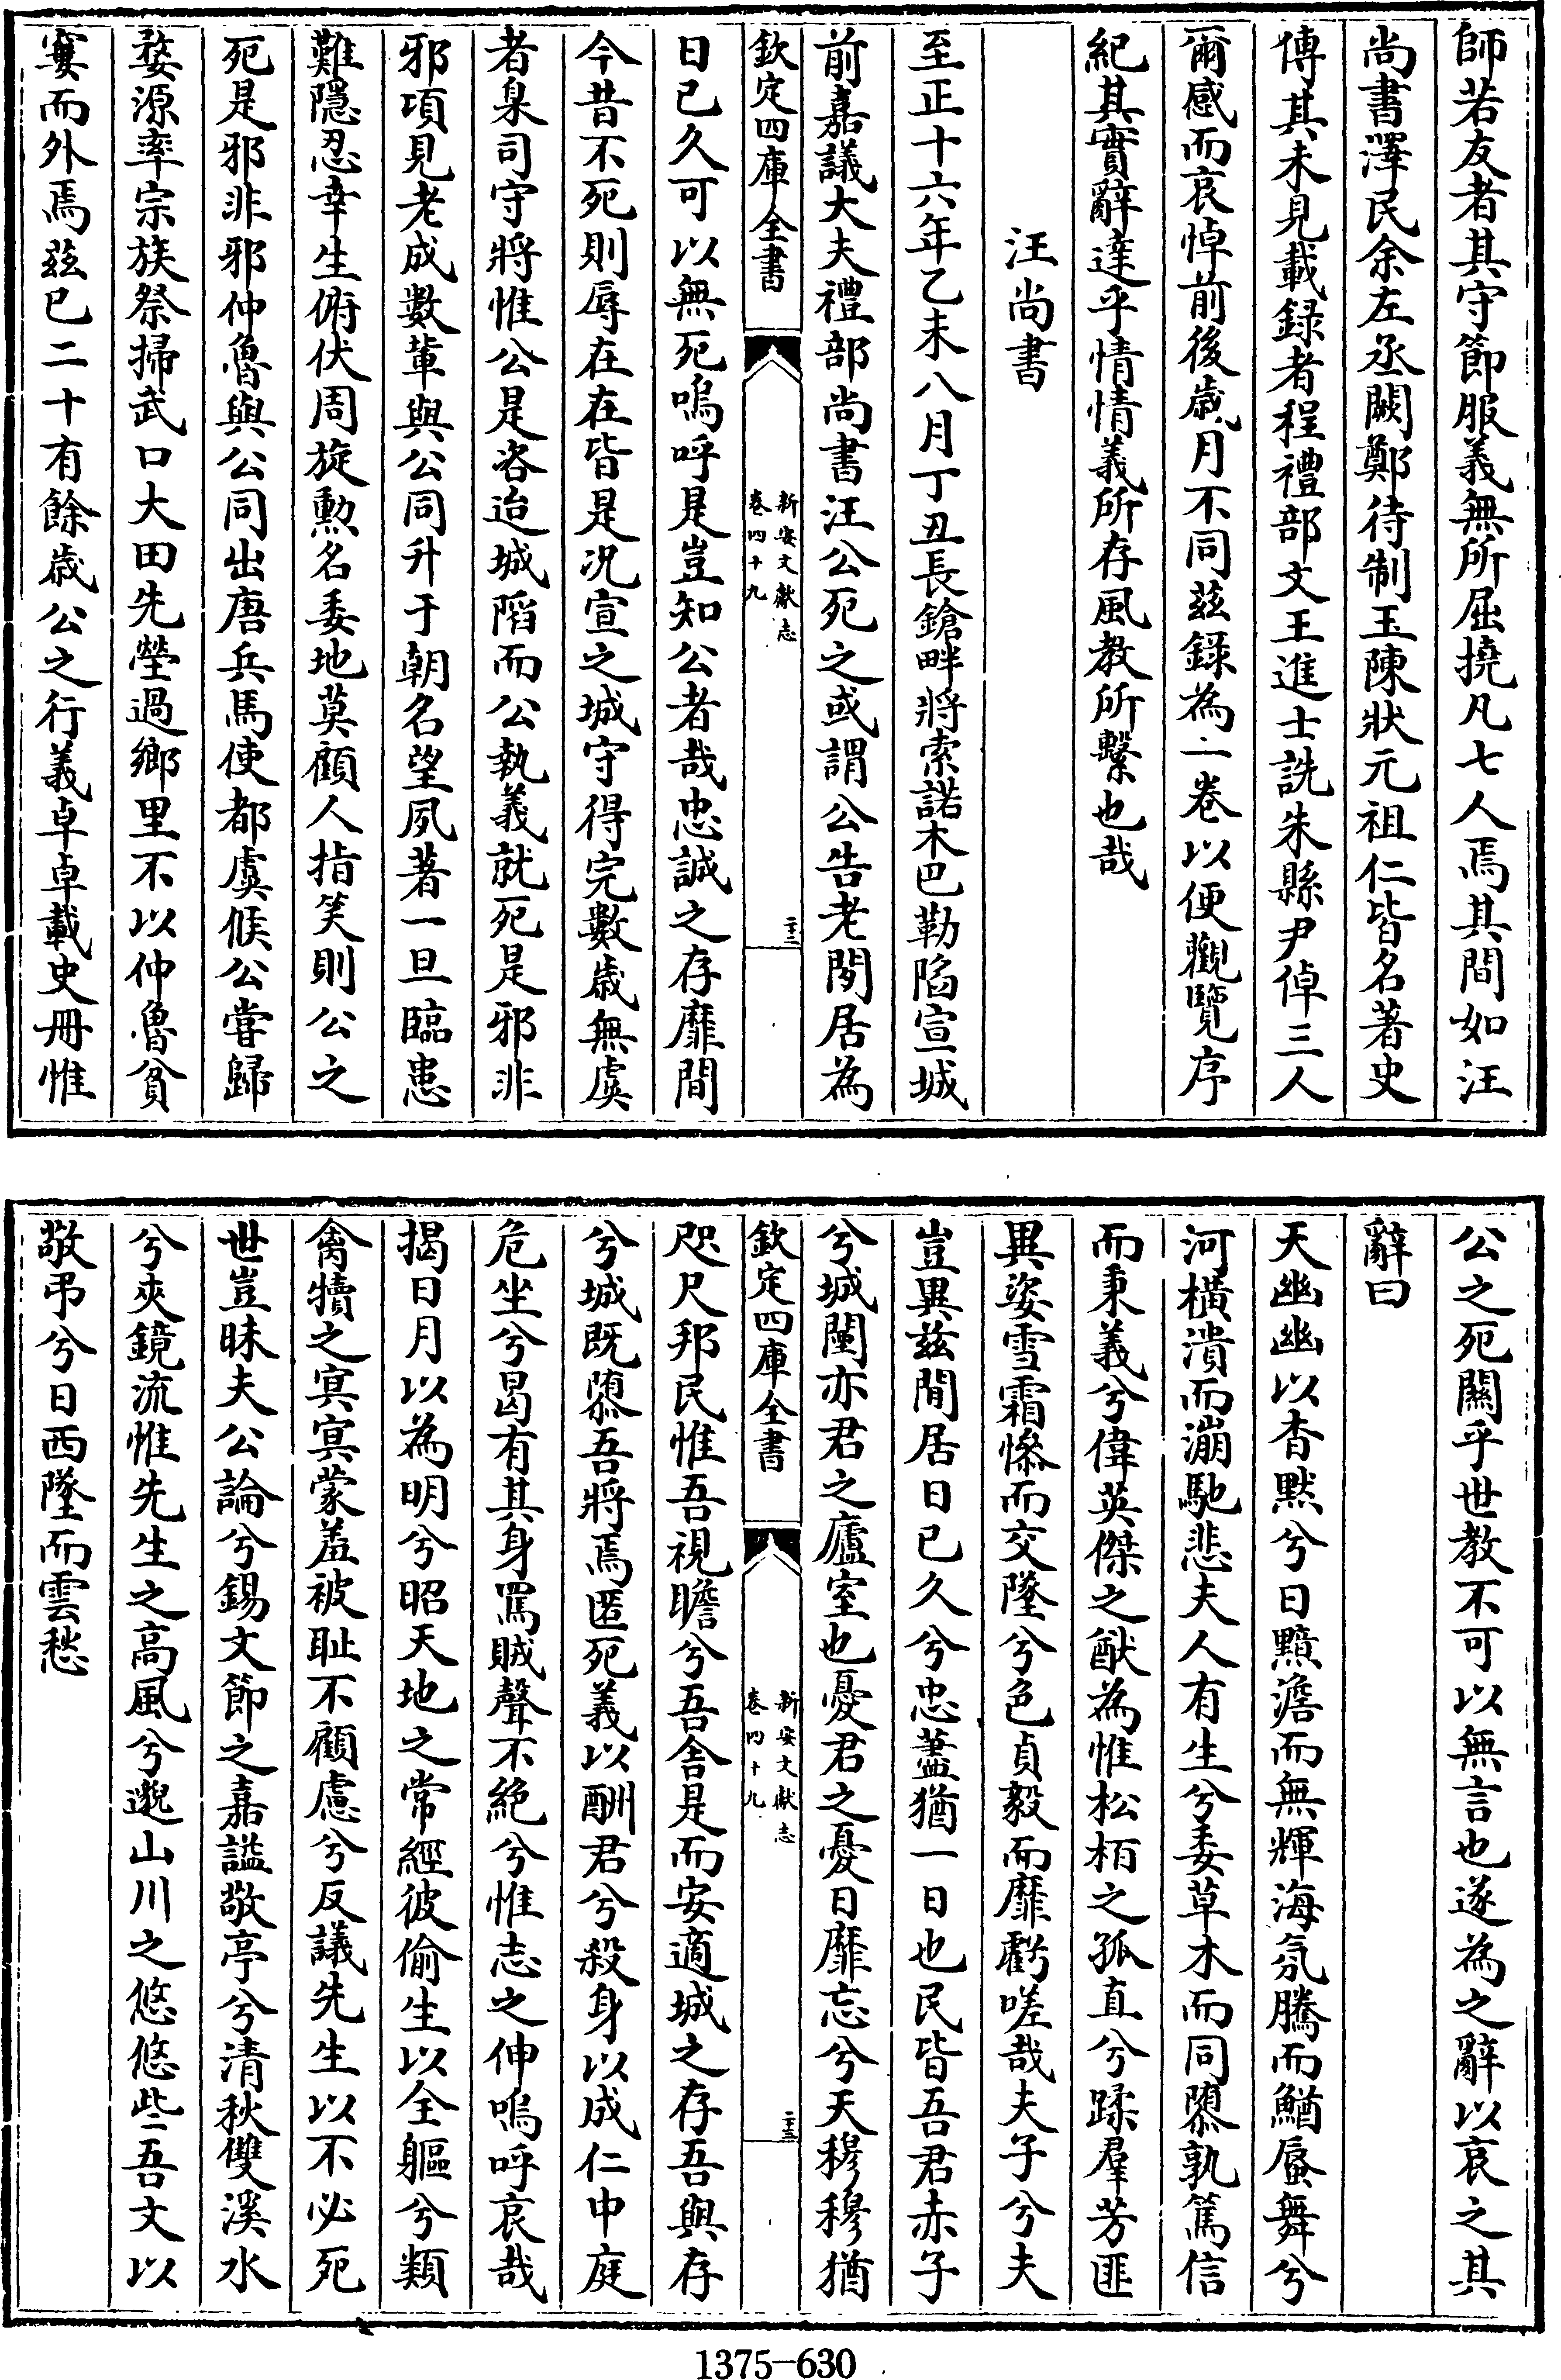 師若友者其守節服義無所屈撓凡七人焉其間如汪
尚書澤民余左丞闕鄭待制玉陳狀元祖仁皆名著史
傳其未見載録者程禮部文王進士詵朱縣尹倬三人
爾感而哀悼前後歲月不同茲錄為一卷以便觀覽序
紀其實辭達乎情情義所存風教所繫也哉
汪尚書
至正十六年乙未八月丁丑長鎗畔將索諾木巴勒陷宣城
前嘉議大夫禮部尚書汪公死之或謂公告老閒居為
欽定四庫全書
新安文獻志
卷四十九
二十二
日已久可以無死嗚呼是豈知公者哉忠誠之存靡間
今昔不死則辱在在皆是况宣之城守得完數歲無虞
者臬司守將惟公是咨迨城陷而公執義就死是邪非
邪項見老成數輩與公同升于朝名望夙著一旦臨患
難隱忍幸生俯伏周旋勲名委地莫顧人指笑則公之
死是邪非邪仲魯與公同出唐兵馬使都虞候公嘗歸
婺源率宗族祭掃武口大田先塋過鄉里不以仲魯貧
寠而外焉茲已二十有餘歲公之行義卓卓載史冊惟
公之死關乎世教不可以無言也遂為之辭以哀之其
辭曰
天幽幽以杳黙兮日黯澹而無輝海氛騰而鰌蜃舞兮
河橫潰而漰馳悲夫人有生兮委草木而同隳孰篤信
而秉義兮偉英傑之猷為惟松柏之孤直兮蹂羣芳匪
異姿雪霜慘而交墜兮色貞毅而靡虧嗟哉夫子兮夫
豈異茲閒居日已久兮忠藎猶一日也民皆吾君赤子
兮城闉亦君之廬室也憂君之憂日靡忘兮天穆穆猶
欽定四庫全書
新安文獻志
卷四十九
二十三
咫尺邦民惟吾視瞻兮吾舍是而安適城之存吾與存
兮城既隳吾將焉匿死義以酬君兮殺身以成仁中庭
危坐兮曷有其身罵賊聲不絶兮惟志之伸嗚呼哀哉
揭日月以為明兮昭天地之常經彼偷生以全軀兮類
禽犢之冥冥蒙羞被耻不顧慮兮反議先生以不必死
世豈昧夫公論兮錫文節之嘉諡敬亭兮清秋雙溪水
兮夾鏡流惟先生之高風兮邈山川之悠悠些吾文以
敬弔兮日西墜而雲愁
1375-630